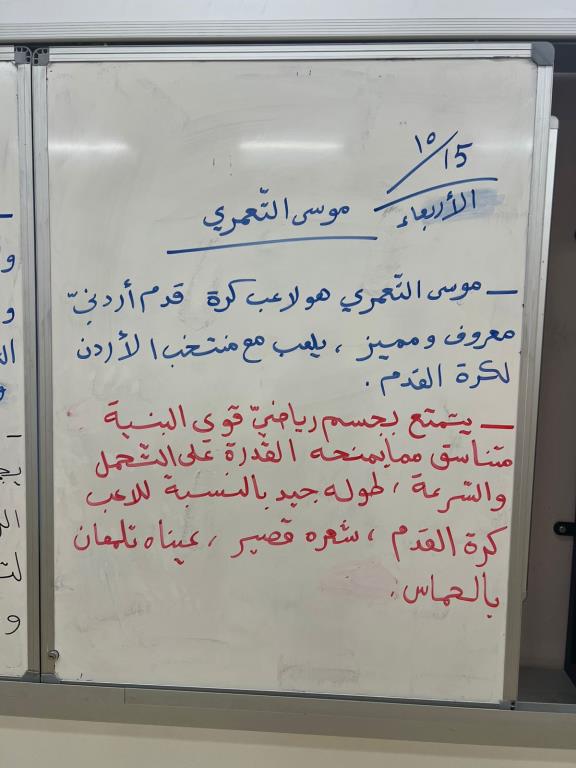 ١٥/15
الأربعاء
موسى التّعمري
ـ موسى التّعمري هو لاعب كرة قدم أردنيّ
معروف ومميز ، يلعب مع منتخب الأردن
لكرة القدم .
ـ يتمتع بجسم رياضيّ قوي البنية
متناسق مما يمنحه القدرة على التّحمل
والسّرعة ، طوله جيد بالنسبة للاعب
كرة القدم ، شعره قصير ، عيناه تلمعان
بالحماس .